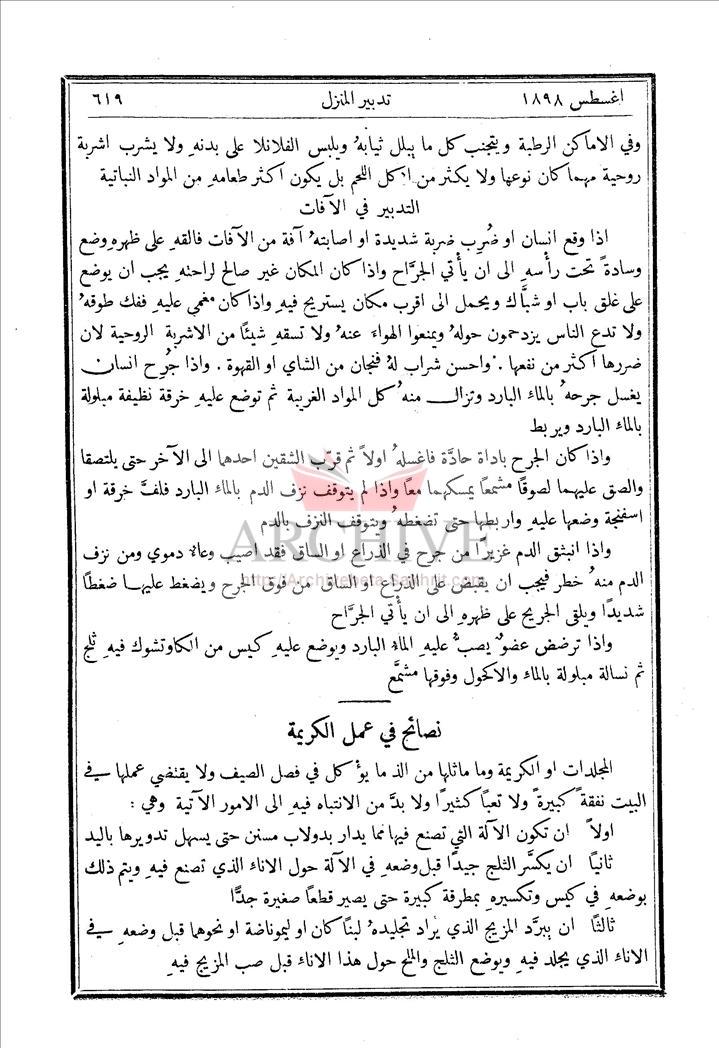 اغسطس ١٨٩٨ تدبير المنزل ٦١٩
وفي الاماكن الرطبة ويتجنب كل ما يبلل ثيابهُ ويلبس الفلانلا على بدنهِ ولا يشرب اشربة
روحية مهما كان نوعها ولا يكثر من اكل اللحم بل يكون اكثر طعامهِ من المواد النباتية
التدبير في الآفات
اذا وقع انسان او ضُرِب ضربة شديدة او اصابتهُ آفة من الآفات فالقهِ على ظهرهِ وضع
وسادةً تحت رأسهِ الى ان يأتي الجرَّاح واذا كان المكان غير صالح لراحتهِ يجب ان يوضع
على غلق باب او شبَّاك ويحمل الى اقرب مكان يستريح فيهِ واذا كان مغمى عليهِ ففك طوقهُ
ولا تدع الناس يزدحمون حولهُ ويمنعوا الهواء عنهُ ولا تسقهِ شيئًا من الاشربة الروحية لان
ضررها اكثر من نفعها . واحسن شراب لهُ فنجان من الشاي او القهوة . واذا جُرح انسان
يغسل جرحهُ بالماء البارد وتزال منهُ كل المواد الغريبة ثم توضع عليهِ خرقة نظيفة مبلولة
بالماء البارد ويربط
واذا كان الجرح باداة حادَّة فاغسلهُ اولاً ثم قرّب الشقين احدهما الى الآخر حتى يلتصقا
والصق عليهما لصوقًا مشمعًا يمسكهما معًا واذا لم يتوقف نزف الدم بالماء البارد فلفَّ خرقة او
اسفنجة وضعها عليهِ واربطها حتى تضغطهُ ويتوقف النزف بالدم
واذا انبثق الدم غزيرًا من جرح في الذراع او الساق فقد اصيب وعاء دموي ومن نزف
الدم منهُ خطر فيجب ان يقبض على الذراع او الساق من فوق الجرح ويضغط عليها ضغطًا
شديدًا ويلقى الجريح على ظهرهِ الى ان يأتي الجرَّاح
واذا ترضض عضوٌ يصبُّ عليهِ الماء البارد ويوضع عليهِ كيس من الكاوتشوك فيهِ ثلج
ثم نسالة مبلولة بالماء والالكحول وفوقها مشمَّع
نصائح في عمل الكريمة
المجلدات او الكريمة وما ماثلها من الذ ما يؤكل في فصل الصيف ولا يقتضي عملها في
البيت نفقةً كبيرةً ولا تعبًا كثيرًا ولا بدَّ من الانتباه فيهِ الى الامور الآتية وهي :
اولاً ان تكون الآلة التي تصنع فيها مما يدار بدولاب مسنن حتى يسهل تدويرها باليد
ثانيًا ان يكسَّر الثلج جيدًا قبل وضعهِ في الآلة حول الاناء الذي تصنع فيهِ ويتم ذلك
بوضعهِ في كيس وتكسيرهِ بمطرقة كبيرة حتى يصير قطعًا صغيرة جدًّا
ثالثًا ان يبرَّد المزيج الذي يراد تجليدهُ لبنًا كان او ليموناضة او نحوهما قبل وضعهِ في
الاناء الذي يجلد فيهِ ويوضع الثلج والملح حول هذا الاناء قبل صب المزيج فيهِ
ARCHIVE
http://Archivebeta.Sakhrit.com